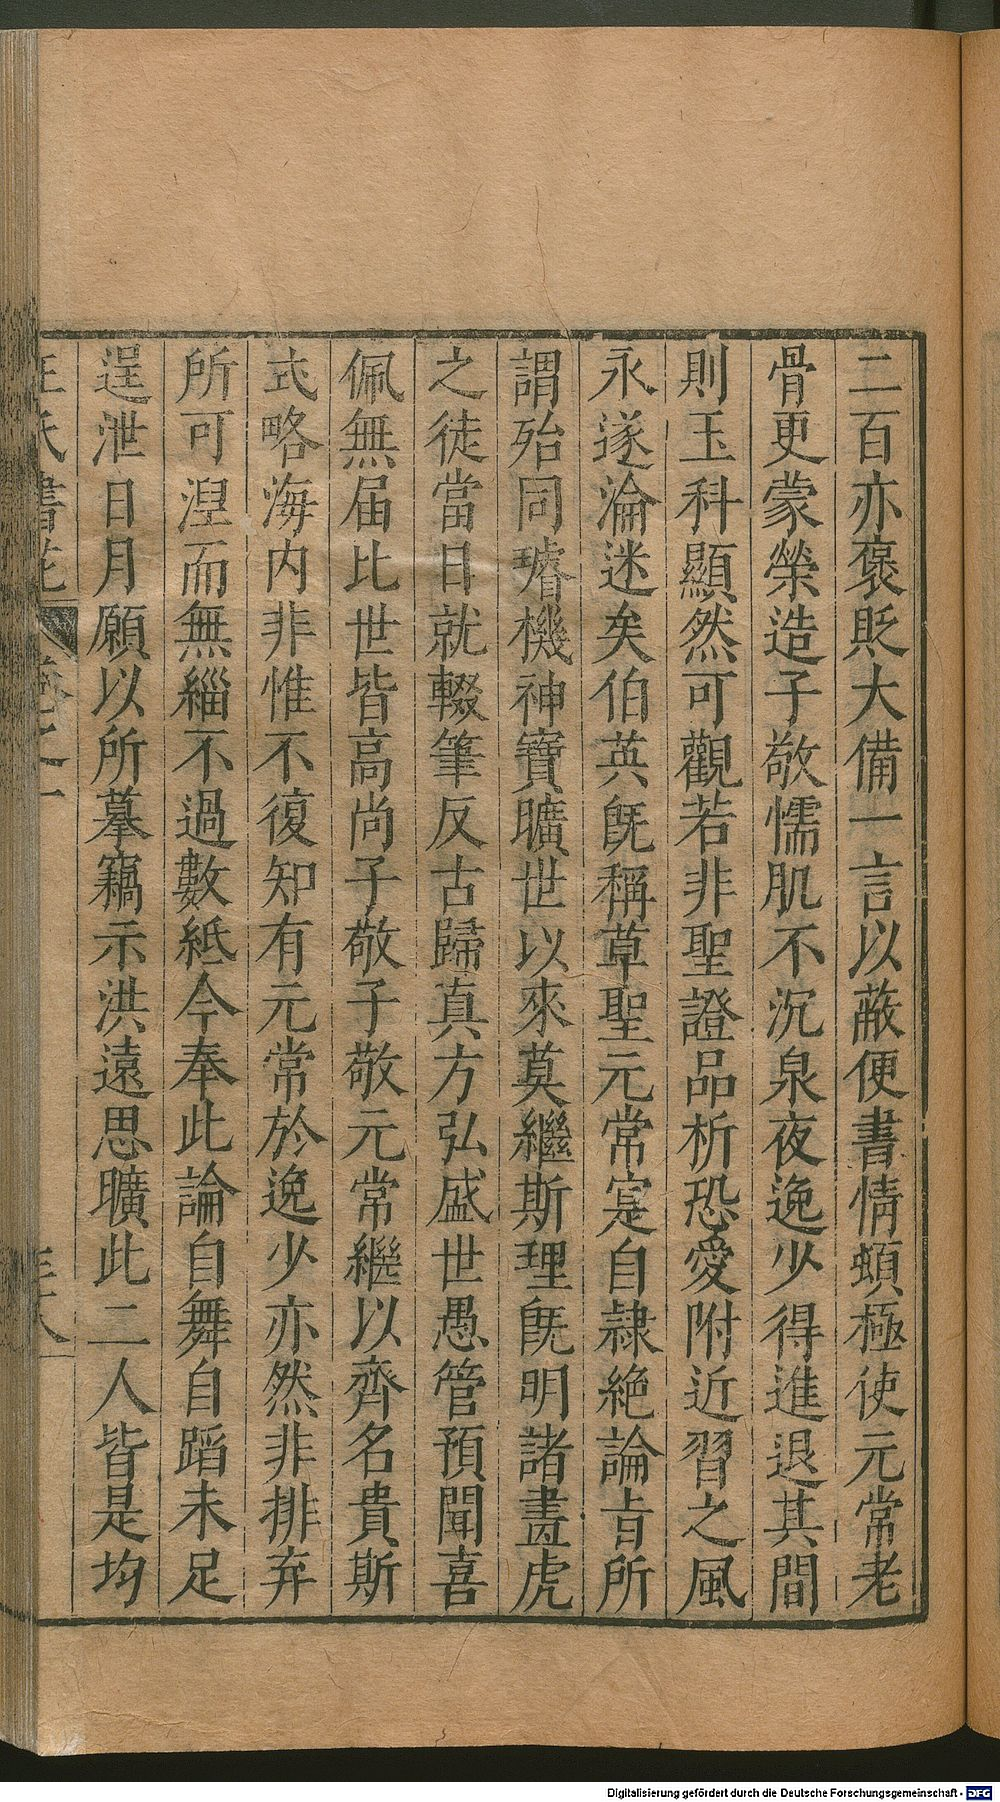 二百亦褒貶大備一言以蔽便書情頓極使元常老
骨更蒙榮造子敬懦肌不沉泉夜逸少得進退其間
則玉科顯然可觀若非聖證品析恐愛附近習之風
永遂淪迷矣伯英既稱草聖元常寔自隷絶論旨所
謂殆同璿機神寶曠世以來莫繼斯理既明諸畫虎
之徒當日就輟筆反古歸真方弘盛世愚管預聞喜
佩無届比世皆高尚子敬子敬元常繼以齊名貴斯
式略海内非惟不復知有元常於逸少亦然非排弃
所可湼而無緇不過數紙今奉此論自舞自蹈未足
逞泄日月願以所摹竊示洪遠思曠此二人皆是均
王氏書苑 卷之一
Digitalisierung gefördert durch die Deutsche Forschungsgemeinschaft - DFG